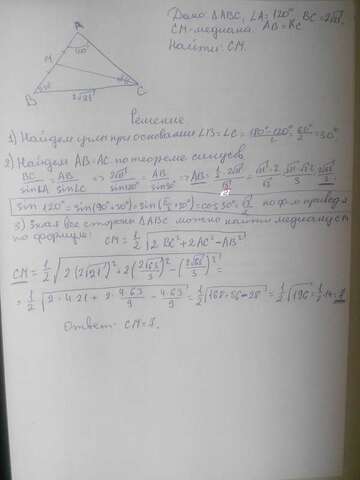 Дано: ΔABC, ∠A=120°, BC=2√21
CM-медиана. AB=AC
Найти: CM.
A
120°
M
B
C
2√21
Решение
1) Найдем углы при основании ∠B=∠C = (180°-120°)/2 = 60°/2 = 30°
2) Найдем AB=AC по теореме синусов
BC/sin∠A = AB/sin∠C => 2√21/sin120° = AB/sin30° => AB =
sin 120° = sin(90°+30°) = = cos 30° = √3/2 по ф-м привед
3) Зная все стороны ΔABC можно найти медиану CM
по формуле:
CM = 1/2 √(2BC²+2AC²-AB²)
CM = 1/2 √(2(2√21)²+2(2√63/3)²-(2√63/3)²) =
= 1/2 √(2·4·21 + 2·4·63/9 - 4·63/9) = 1/2 √(168+56-28) = 1/2 √196 = 1/2·14 = 7
Ответ: CM=7.